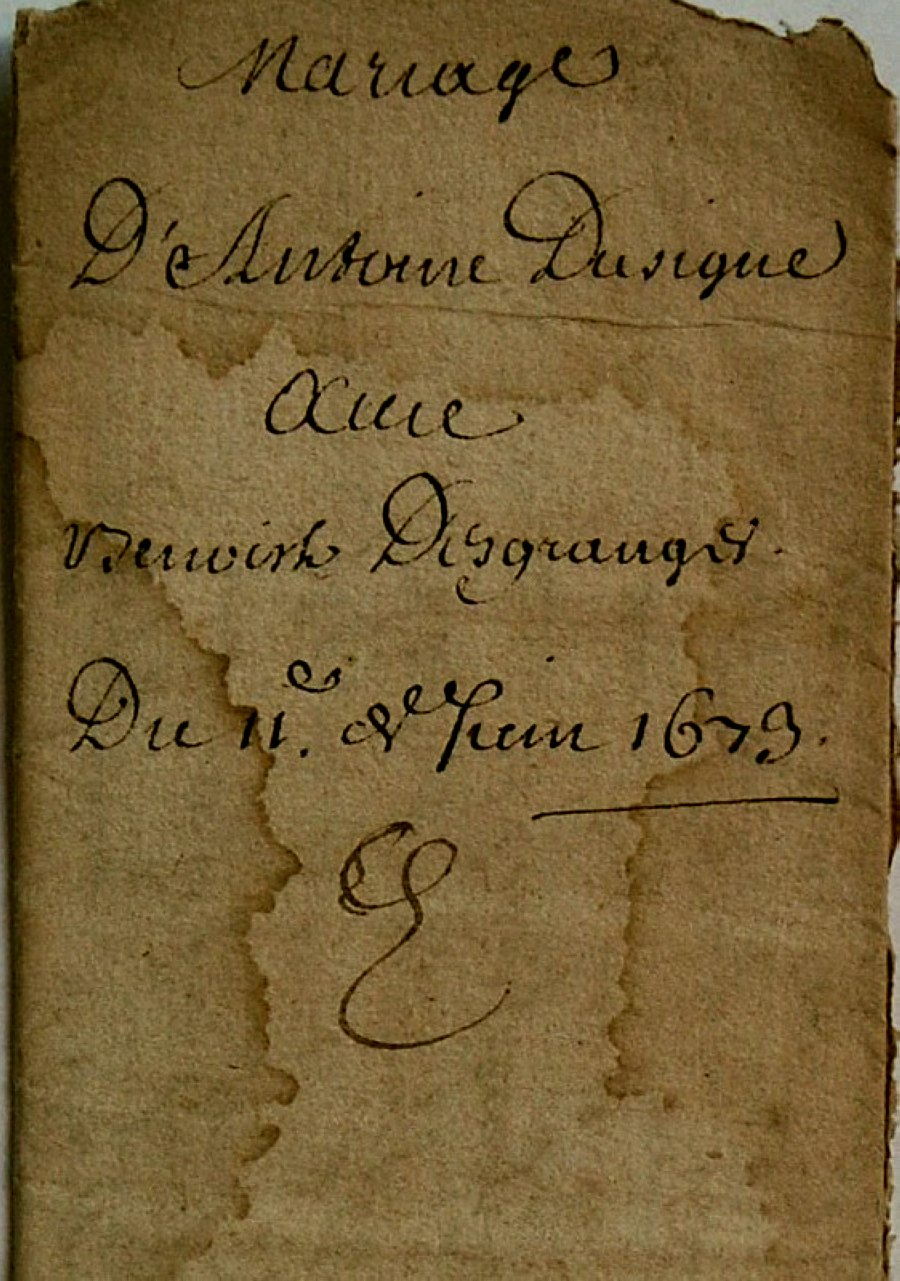 Mariage
D'Antoine Dusigne
Avec
Benoiste Desgranges.
Du 11.e de Juin 1673.